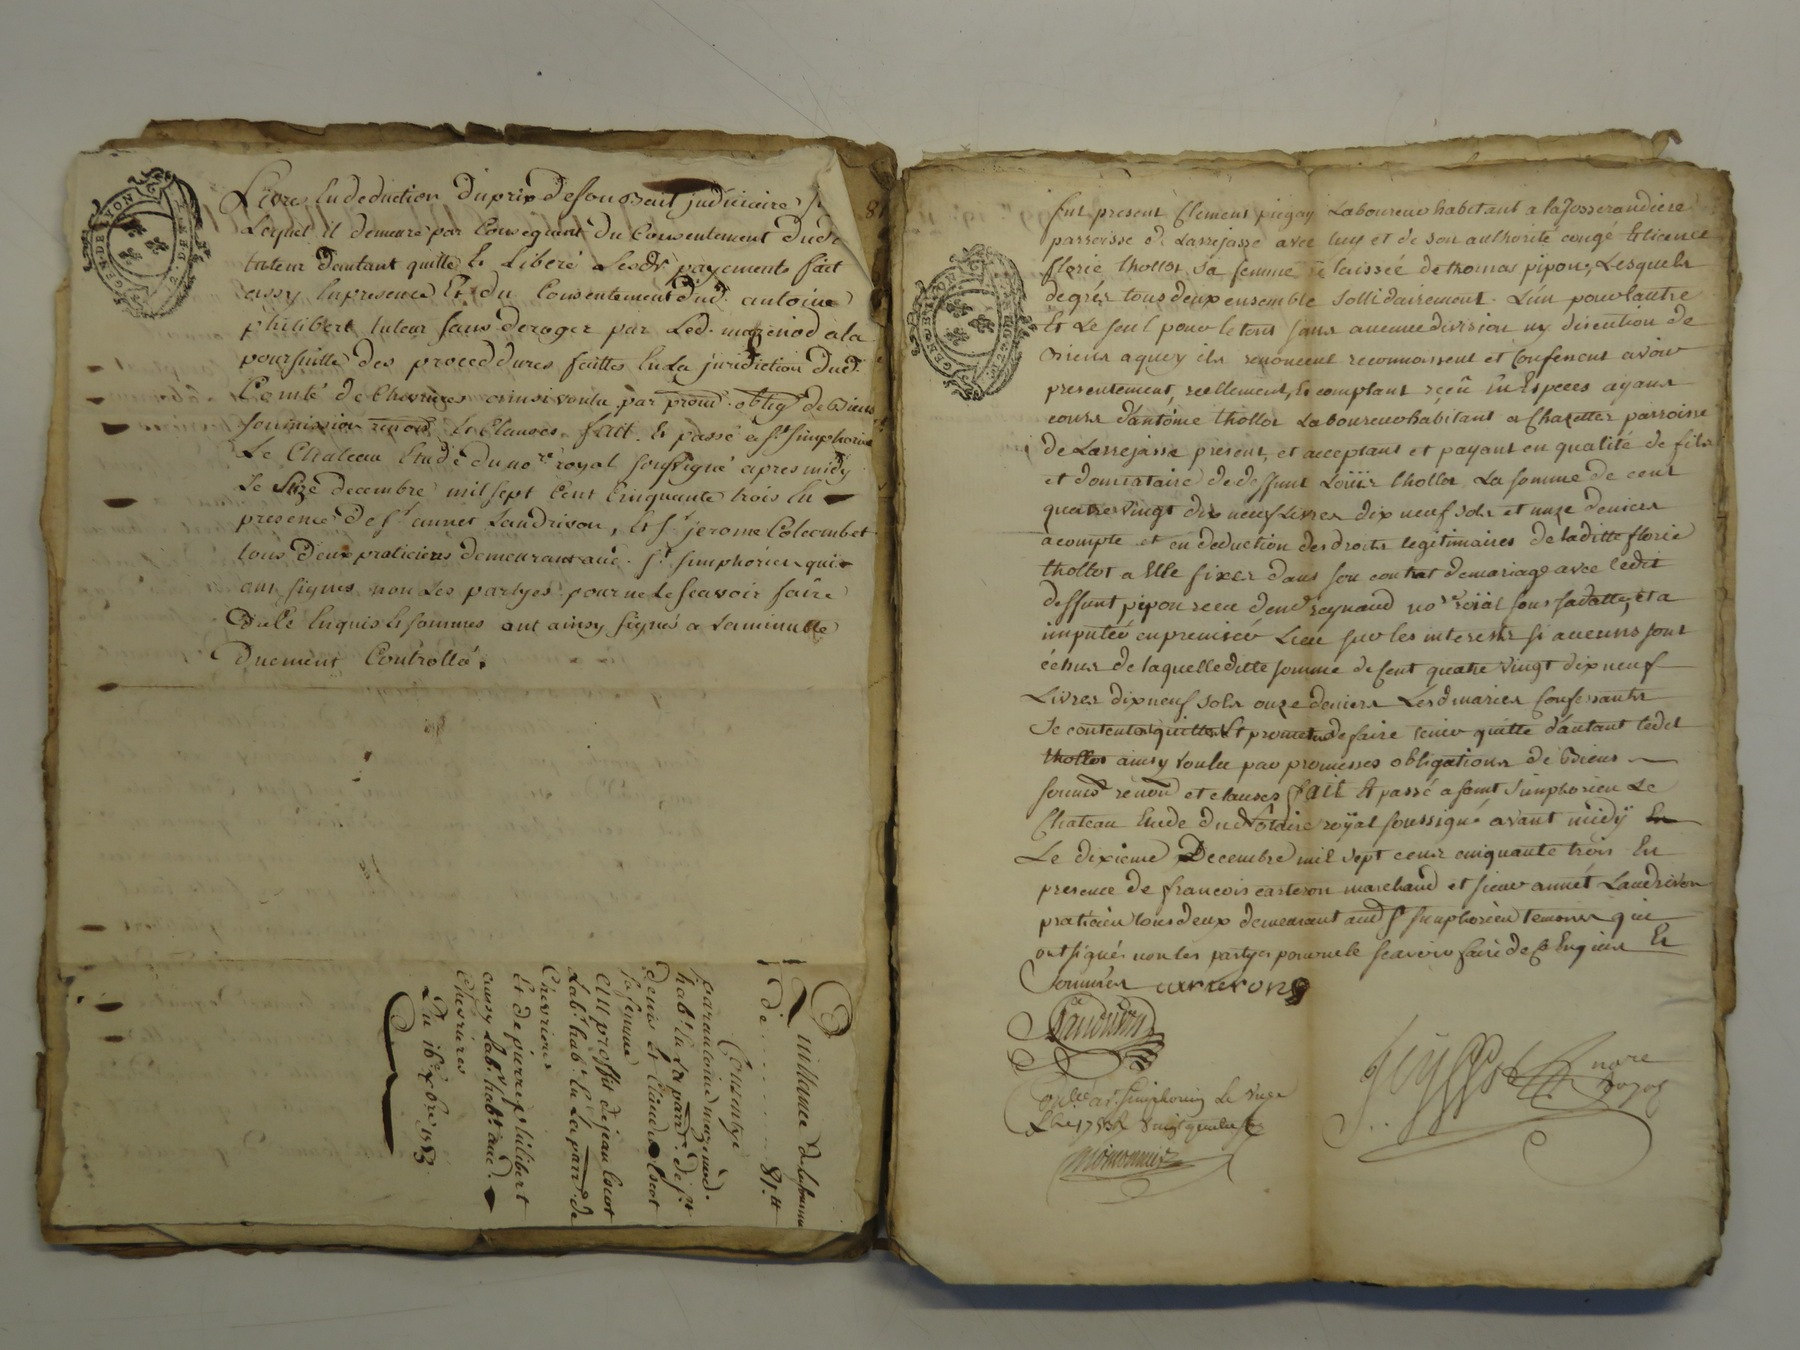 Livres En deduction Du prix De son Bail judiciaire
Lequel il demeure par Consequent Du Consentement Dudt
tuteur Dautant quitte Et Liberé Lesdts payements fait
assy En presence Et du Consentement Dud. antoine
philibert tuteur sans deroger par Led. mazenod a la
poursuitte des proceddures faittes En La juridiction Dud.
Comté de Chevrieres ainsi voulu par prom. oblig. de Biens
soumission renon. Et Clauses fait Et passé a St Simphorien
Le Chateau Etude du nore royal soussigné apres midy
Le Seize decembre mil sept Cent Cinquante trois En
presence De Sr annet Landrivon, Et Sr jerome Colcombet
tous Deux praticiens demeurant aud. St Simphorien qui
ont signes non Les partyes pour ne Le scavoir faire
De Ce Enquis Et sommes ont ainsy signés a La minutte
Duement Controllé.
Quittance De la somme
de 81 tt
Consentye
par antoine mazenod
habt En La parr. de St
denis Et Claude Escot
sa femme
au proffit de jean Escot
Labr habt En La parr. de
Chevrieres
Et de pierre philibert
aussy Labr habt aud.
Chevrieres
Du 16e xbre 1753
81
fut present Clement pugay Laboureur habitant a la Josserandiere
parroisse de Larrejasse avec luy et de son authorité congé Et licence
florie thollot sa femme relaissée de thomas pipon, Lesquels
de grés tous deux ensemble sollidairement L'un pour lautre
Et Le seul pour le tout sans aucune division ny discution de
Biens a quoy ils renoncent reconnoissent et Confessent avoir
presentement, reellement, Et comptant reçeu En Especes ayant
cours d'antoine thollot Laboureur habitant a Chazettes parroisse
de Larrejasse present, et acceptant et payant en qualité de fils
et donnataire de deffunt Loüis thollot La somme de cent
quatre vingt dix neuf Livres dix neuf sols et onze deniers
a compte et en deduction des droits legitimaires de laditte florie
thollot a Elle fixez dans son contrat de mariage avec ledit
deffunt pipon receu de me reynaud nore roïal sous sa datte, et a
imputer en premier Lieu sur les interests si aucuns sont
échus de laquelle ditte somme de Cent quatre vingt dix neuf
Livres dix neuf sols onze deniers Lesd mariés Confessants
se contentent quittent Et promettent de faire tenir quitte d'autant ledit
thollot ainsy voulu par promesses obligations de Biens
soumis renon et clauses fait Et passé a saint Simphorien Le
Chateau Etude dud Notaire roÿal soussigné avant midÿ
Le dixieme Decembre mil sept cent cinquante trois En
presence de francois carteron marchand et sieur annét Landrivon
praticien tous deux demeurant aud St Simphorien temoins qui
ont signé non les partyes pour ne le scavoir faire de ce Enquis Et
Sommés carteron
Landrivon
nore
royal
Con.lé a St Simphorien Le